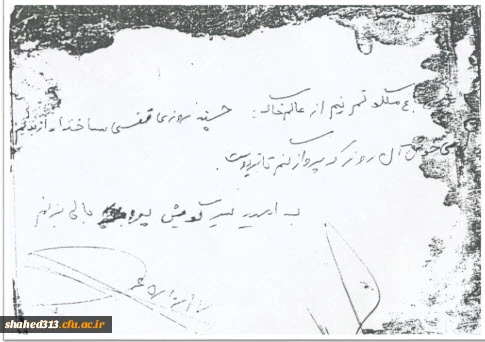 غ ملکوتم نیم از عالم خاک: چند روزی قفسی ساخته‌اند از بدنم
ی خوش آن روز که پرواز کنم تا بر دوست.
به امید سر کویش بالی بزنم
shahed313.cfu.ac.ir